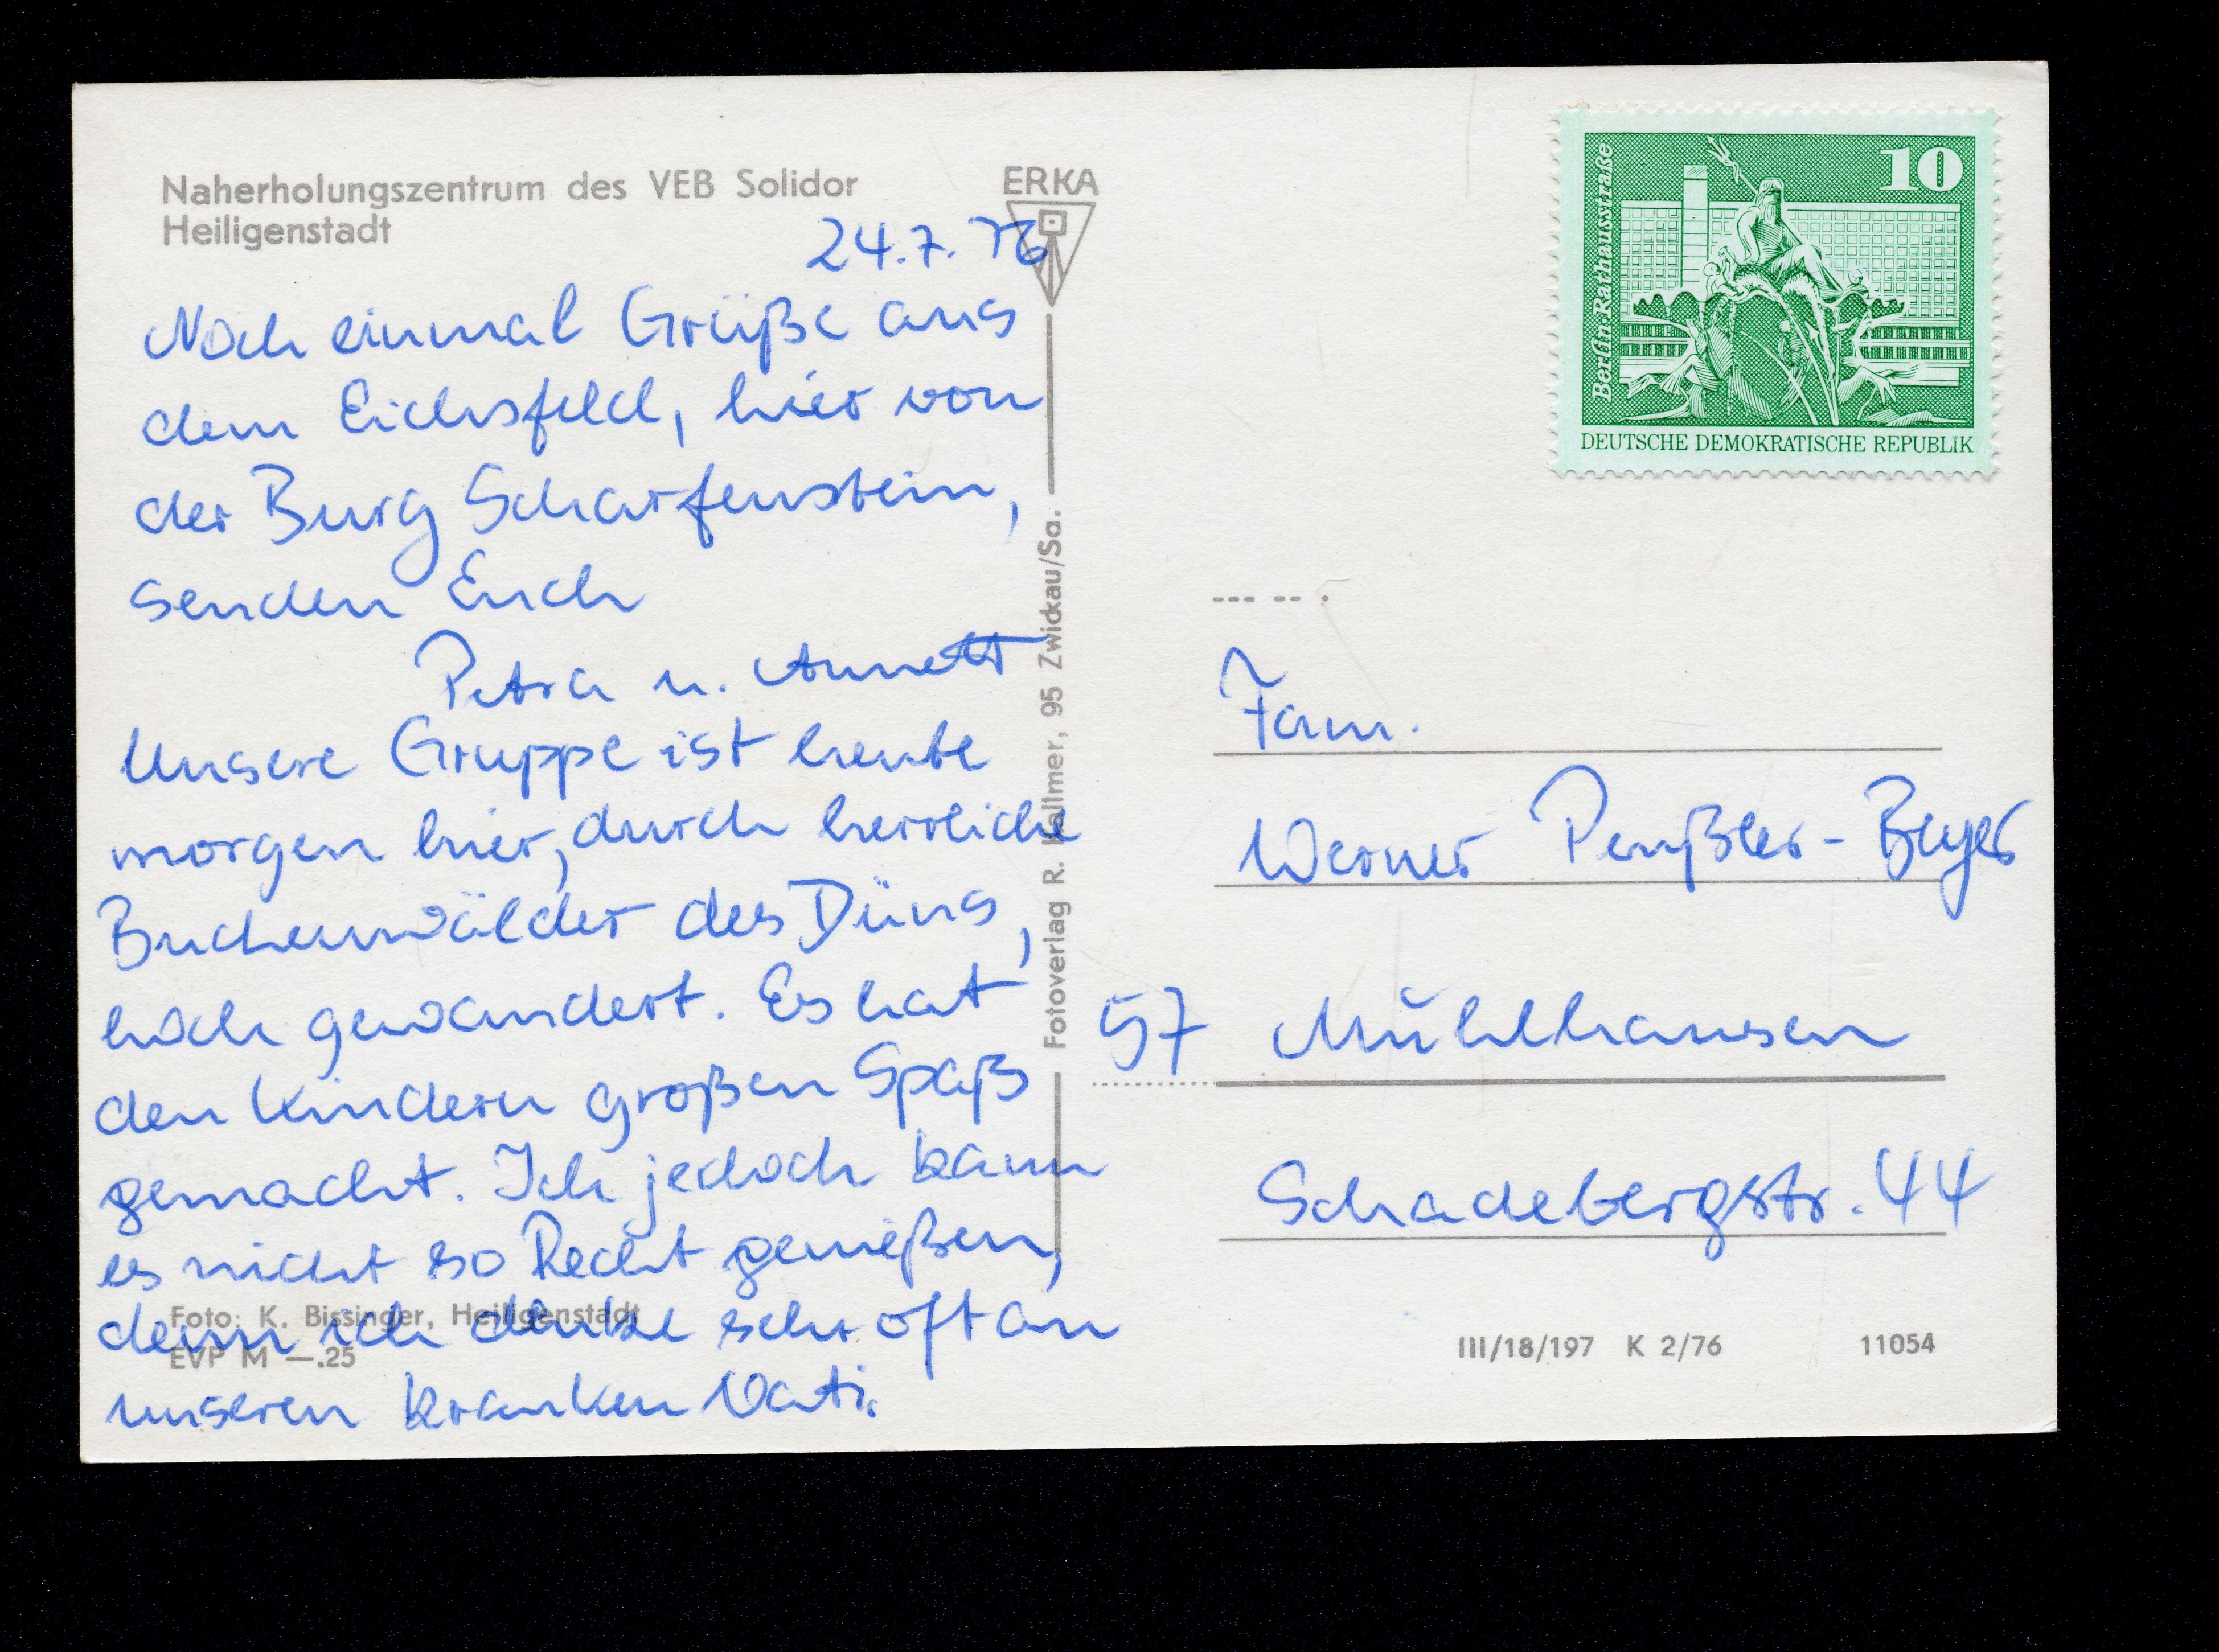 Naherholungszentrum des VEB Solidor
Heiligenstadt
ERKA
24.7.76
Noch einmal Grüße aus
dem Eichsfeld, hier von
der Burg Scharfenstein,
senden Euch
Petra u. Annett
Unsere Gruppe ist heute
morgen hier, durch herrliche
Buchenwälder des Düns,
hoch gewandert. Es hat
den Kindern großen Spaß
gemacht. Ich jedoch kann
es nicht so Recht genießen,
denn ich denke sehr oft an
unseren kranken Vati.
Foto: K. Bissinger, Heiligenstadt
EVP M —.25
Fotoverlag R. Kallmer, 95 Zwickau/Sa.
Berlin Rathausstraße
10
DEUTSCHE DEMOKRATISCHE REPUBLIK
Fam.
Werner Peußler-Beyer
57 Mühlhausen
Schadebergstr. 44
III/18/197 K 2/76 11054